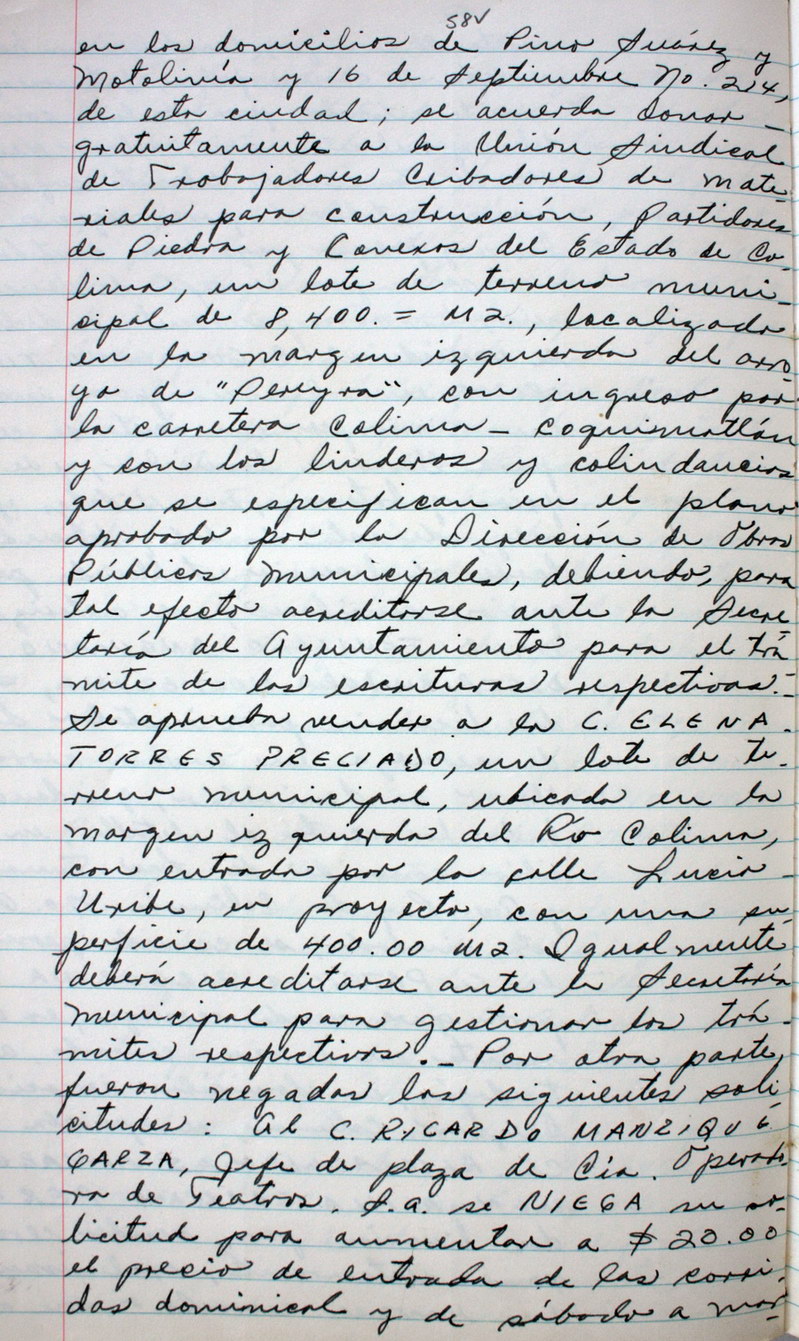 58V
en los domicilios de Pino Suárez y
Motolinía y 16 de Septiembre No. 214,
de esta ciudad; se acuerda donar -
gratuitamente a la Unión Sindical
de Trabajadores Cribadores de mate-
riales para construcción, Partidores
de Piedra y Conexos del Estado de Co-
lima, un lote de terreno muni-
cipal de 8,400.= M2., localizado
en la margen izquierda del arro-
yo de "Pereyra", con ingreso por
la carretera Colima - Coquimatlán
y con los linderos y colindancias
que se especifican en el plano
aprobado por la Dirección de Obras
Públicas Municipales, debiendo, para
tal efecto acreditarse ante la Secre
taría del Ayuntamiento para el trá
mite de las escrituras respectivas.-
Se aprueba vender a la C. ELENA.
TORRES PRECIADO, un lote de te-
rreno municipal, ubicado en la
margen izquierda del Río Colima,
con entrada por la calle Lucio -
Uribe, en proyecto, con una su
perficie de 400.00 M2. Igualmente
deberá acreditarse ante la Secretaría
Municipal para gestionar los trá-
mites respectivos. - Por otra parte,
fueron negadas las siguientes soli
citudes: Al C. RICARDO MANZIQUÉ
GARZA, Jefe de plaza de Cía. Operado
ra de Teatros. S.A. se NIEGA su so-
licitud para aumentar a $ 20.00
el precio de entrada de las corri-
das dominical y de sábado a mar